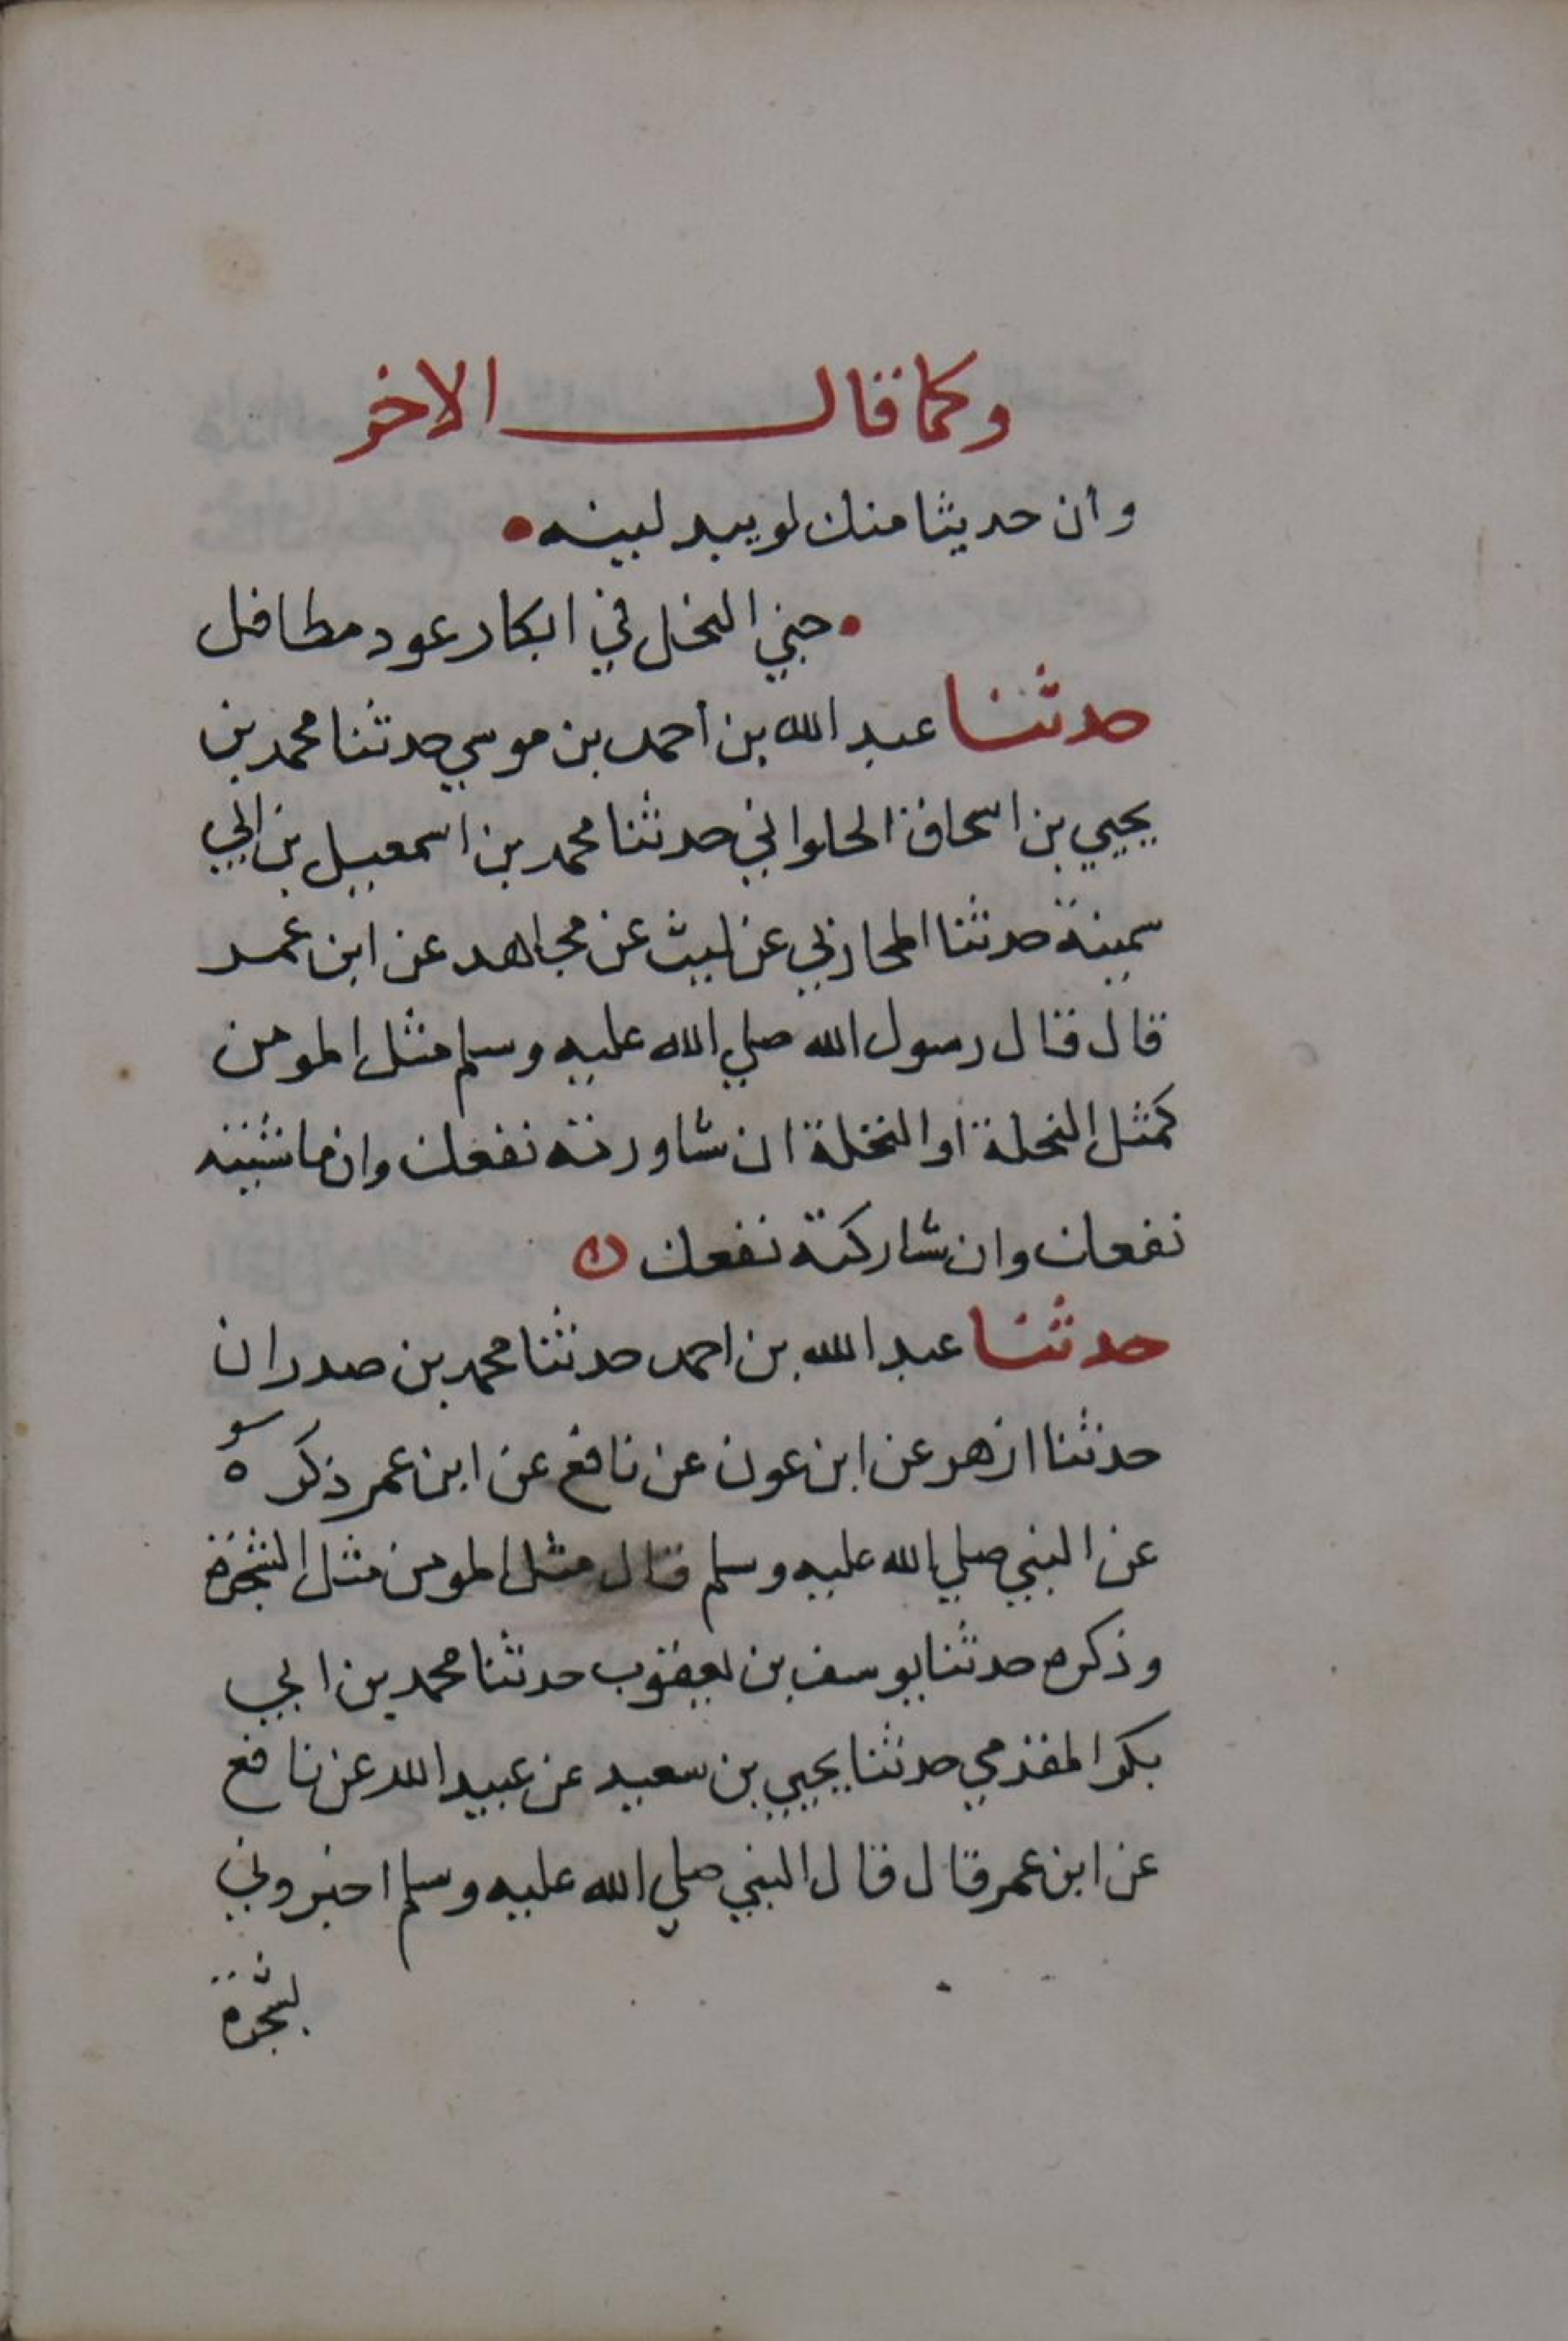 وكما قال الاخر
وان حديثا منك لو يبد لبينه
جني النحل في ابكار عود مطافل
حدثنا عبد الله بن أحمد بن موسي حدثنا محمد بن
يحيي بن اسحاق الحلواني حدثنا محمد بن اسمعيل بن ابي
سمينة حدثنا المحاربي عن ليث عن مجاهد عن ابن عمر
قال قال رسول الله صلي الله عليه وسلم مثل المومن
كمثل النحلة او النخلة ان شاورته نفعك وان ماشيته
نفعك وان شاركته نفعك
حدثنا عبد الله بن احمد حدثنا محمد بن صدران
حدثنا ازهر عن ابن عون عن نافع عن ابن عمر ذكره
عن النبي صلي الله عليه وسلم قال مثل المومن مثل الشجرة
وذكره حدثنا يوسف بن يعقوب حدثنا محمد بن ابي
بكر المقدمي حدثنا يحيي بن سعيد عن عبيد الله عن نافع
عن ابن عمر قال قال النبي صلي الله عليه وسلم اخبروني
بشجرة